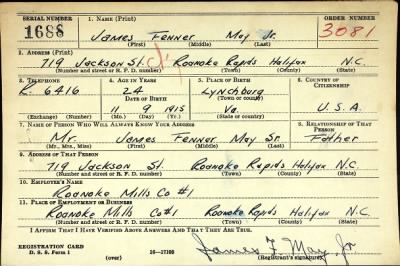 SERIAL NUMBER 1. NAME (Print) ORDER NUMBER
1688 James Fenner May Jr. 3081
(First) (Middle) (Last)
2. ADDRESS (Print)
719 Jackson St. Roanoke Rapids Halifax N.C.
(Number and street or R. F. D. number) (Town) (County) (State)
3. TELEPHONE 4. AGE IN YEARS 5. PLACE OF BIRTH 6. COUNTRY OF CITIZENSHIP
R. 6416 24 Lynchburg
DATE OF BIRTH (Town or county)
11 9 1915 Va. U.S.A.
(Exchange) (Number) (Mo.) (Day) (Yr.) (State or country)
7. NAME OF PERSON WHO WILL ALWAYS KNOW YOUR ADDRESS 8. RELATIONSHIP OF THAT PERSON
Mr. James Fenner May Sr. Father
(Mr., Mrs., Miss) (First) (Middle) (Last)
9. ADDRESS OF THAT PERSON
719 Jackson St. Roanoke Rapids Halifax N.C.
(Number and street or R. F. D. number) (Town) (County) (State)
10. EMPLOYER'S NAME
Roanoke Mills Co #1
11. PLACE OF EMPLOYMENT OR BUSINESS
Roanoke Mills Co#1 Roanoke Rapids Halifax N.C.
(Number and street or R. F. D. number) (Town) (County) (State)
I AFFIRM THAT I HAVE VERIFIED ABOVE ANSWERS AND THAT THEY ARE TRUE.
REGISTRATION CARD
D. S. S. Form 1 (over) 16-17105 James F. May Jr
(Registrant's signature)